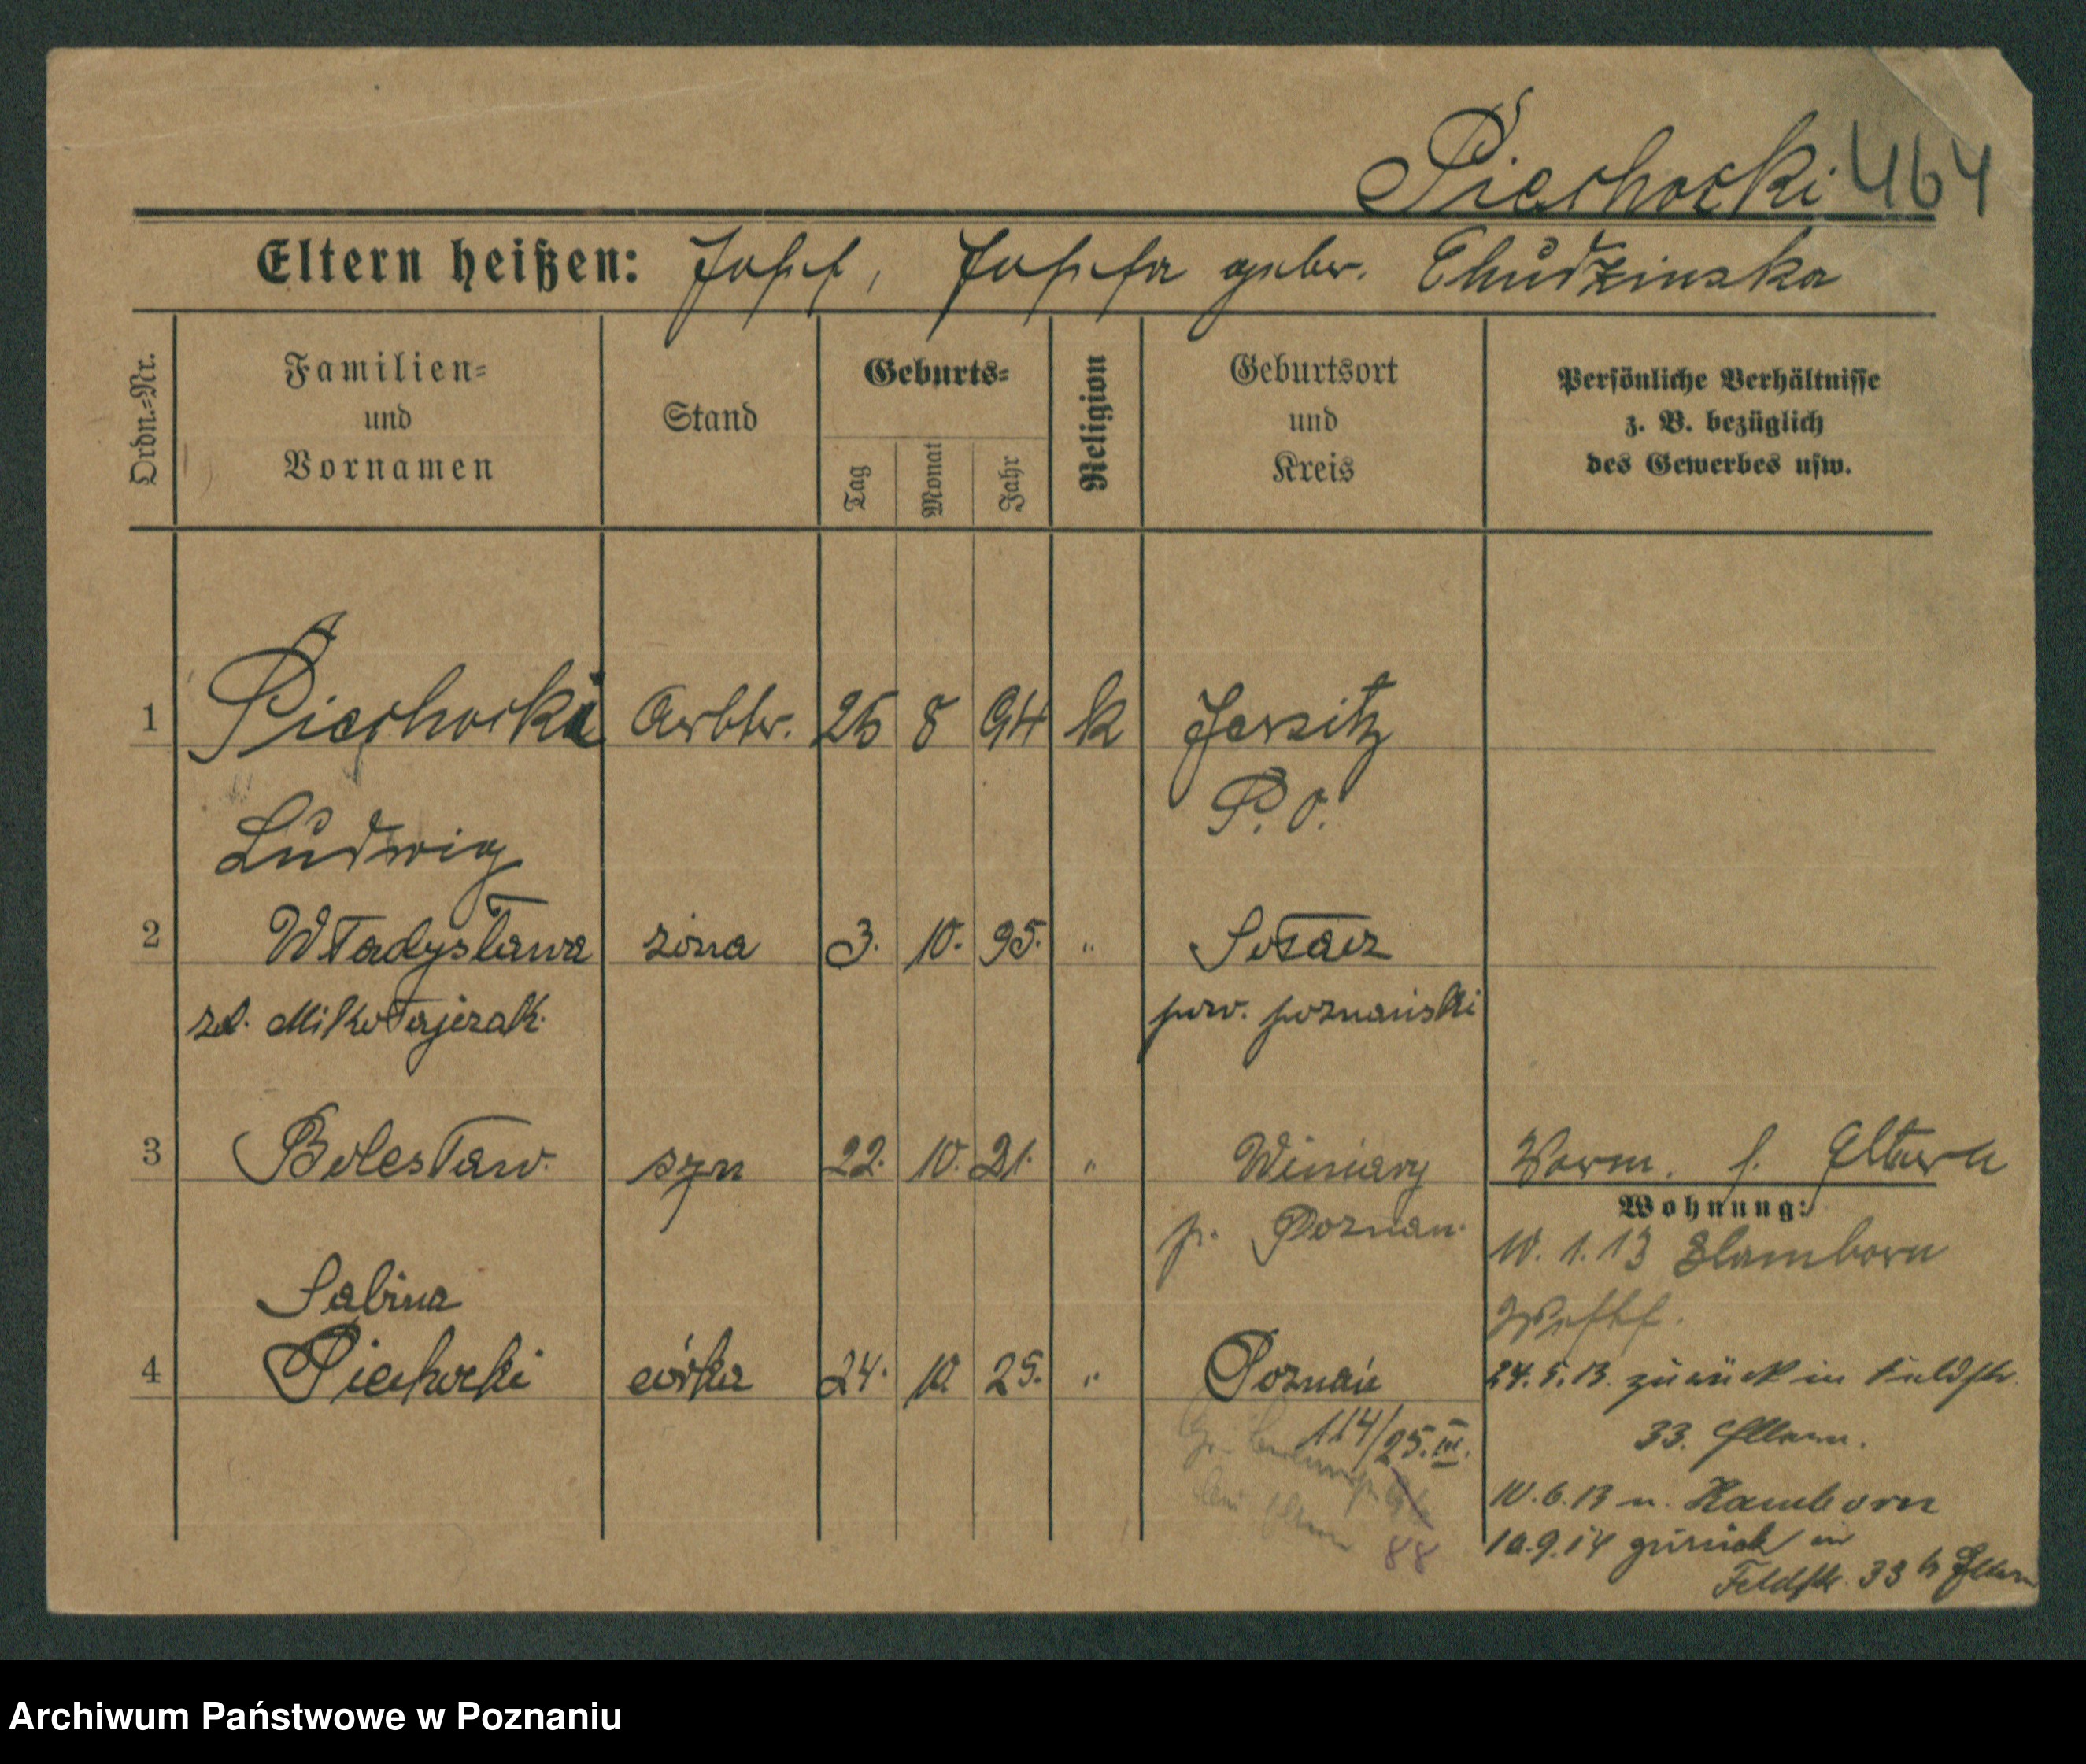 Piechocki 464
Eltern heißen: Josef, Josefa geber. Chudzinska
Ordn.=Nr.
Familien=
und
Vornamen
Stand
Geburts=
Tag
Monat
Jahr
Religion
Geburtsort
und
Kreis
Persönliche Verhältnisse
z. B. bezüglich
des Gewerbes usw.
1 Piechocki Arbtr. 25 8 94 k Jersitz
P. O.
Ludwig
2 Władysława żona 3. 10. 95. " Sołacz
zd. Mikołajczak. pow. poznański
3 Bolesław. syn 22. 10. 21. " Winiary Vorm. s. Eltern
Wohnung:
p. Poznań. 10. 1. 13 Hamborn
Westf.
Sabina
4 Piechocki córka 24. 10. 25. " Poznań 24. 5. 13. zurück in Feldstr.
114/25. III. 33. Eltern.
10. 6. 13 n. Hamborn
88 10. 9. 14 zurück in
Feldstr. 33 b Eltern
Archiwum Państwowe w Poznaniu